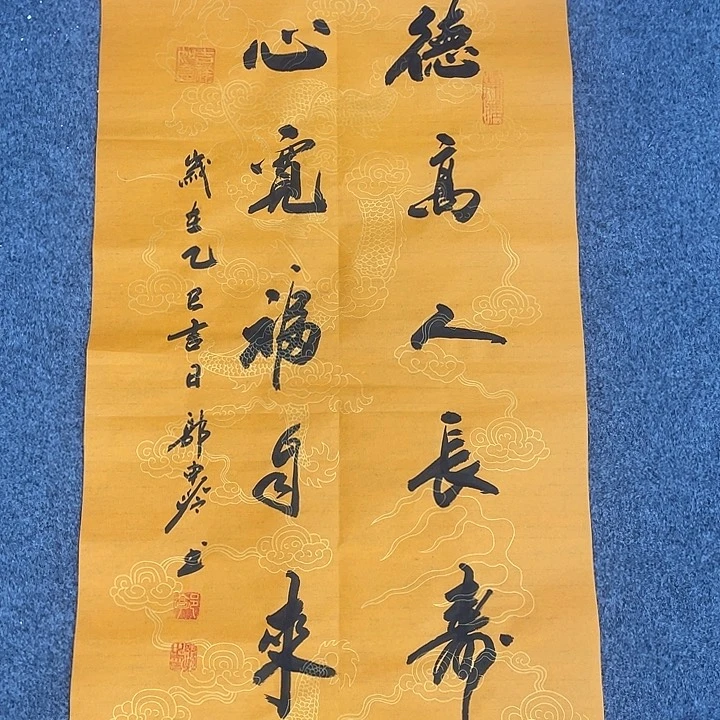 德高人長壽
心寬福自來
歲在乙巳吉日